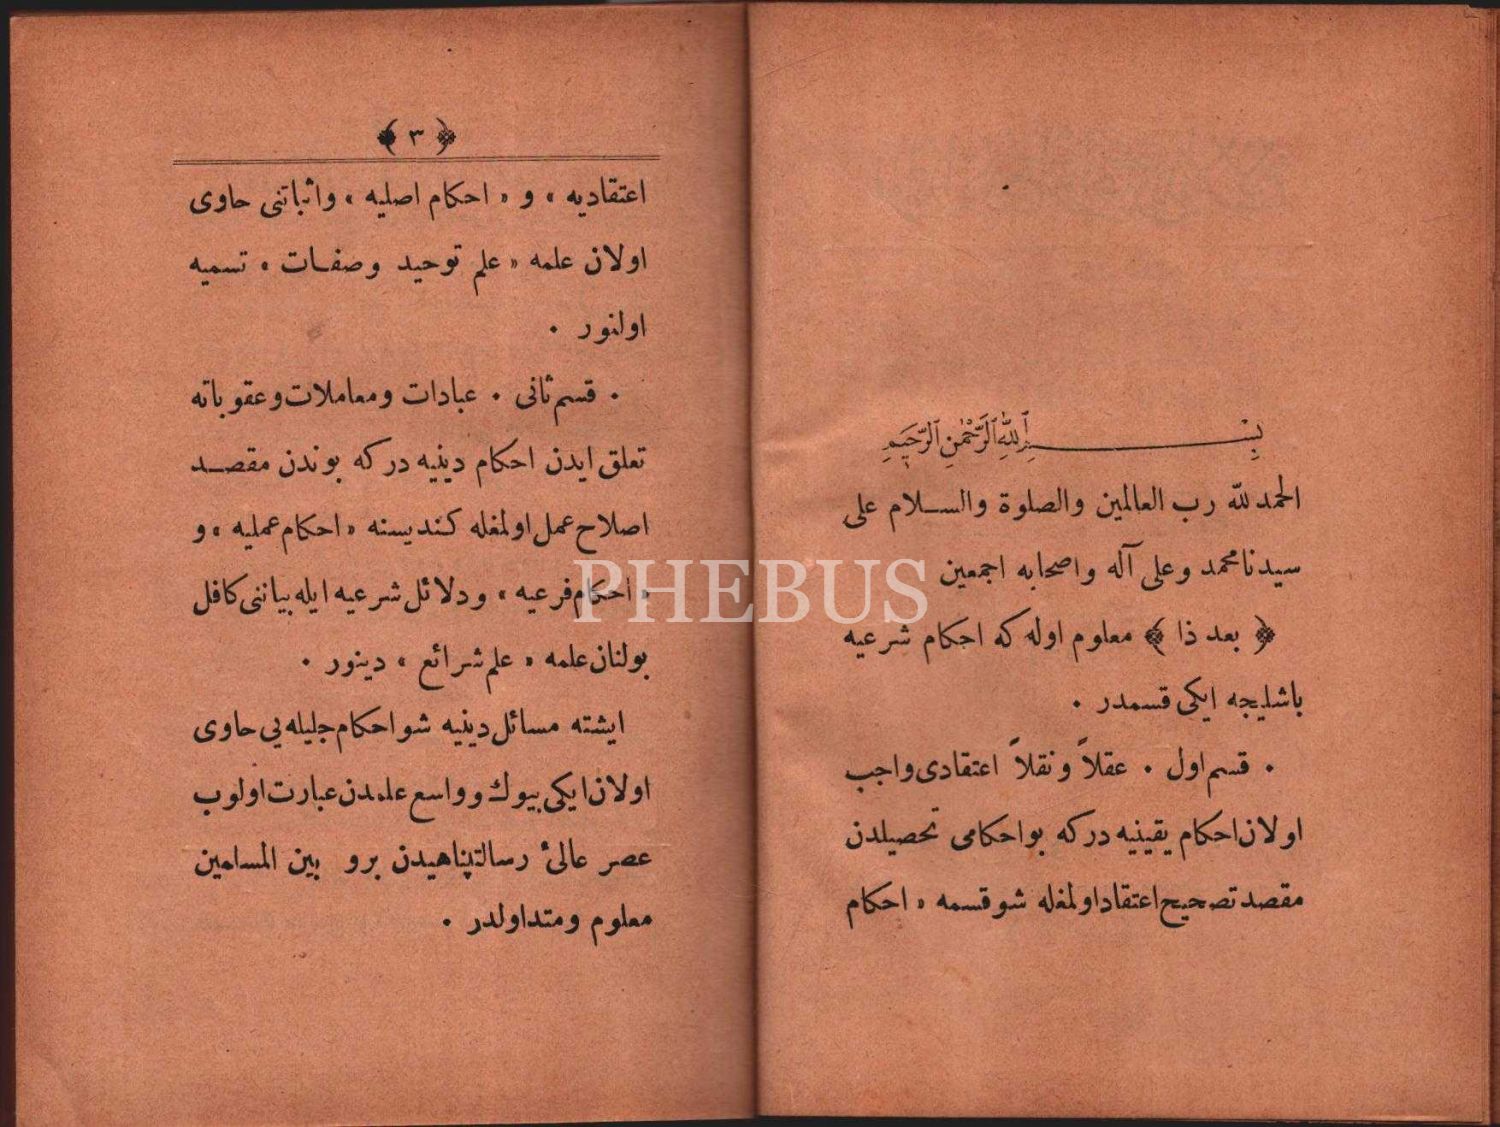 بسم الله الرحمن الرحيم
الحمد لله رب العالمين والصلوة والسلام على
سيدنا محمد وعلى آله واصحابه اجمعين
﴿ بعد ذا ﴾ معلوم اوله كه احكام شرعيه
باشليجه ايكى قسمدر .
. قسم اول . عقلاً ونقلاً اعتقادى واجب
اولان احكام يقينيه دركه بو احكامى تحصيلدن
مقصد تصحيح اعتقاد اولمغله شو قسمه « احكام
﴿ ٣ ﴾
اعتقاديه » و « احكام اصليه » واثباتنى حاوى
اولان علمه « علم توحيد وصفات » تسميه
اولنور .
. قسم ثانى . عبادات ومعاملات وعقوباته
تعلق ايدن احكام دينيه دركه بوندن مقصد
اصلاح عمل اولمغله كنديسنه « احكام عمليه » و
« احكام فرعيه » ودلائل شرعيه ايله بياننى كافل
بولنان علمه « علم شرائع » دينور .
ايشته مسائل دينيه شو احكام جليله يى حاوى
اولان ايكى بيوك وواسع علمدن عبارت اولوب
عصر عالئ رسالتپناهيدن برو بين المسلمين
معلوم ومتداولدر .
PHEBUS